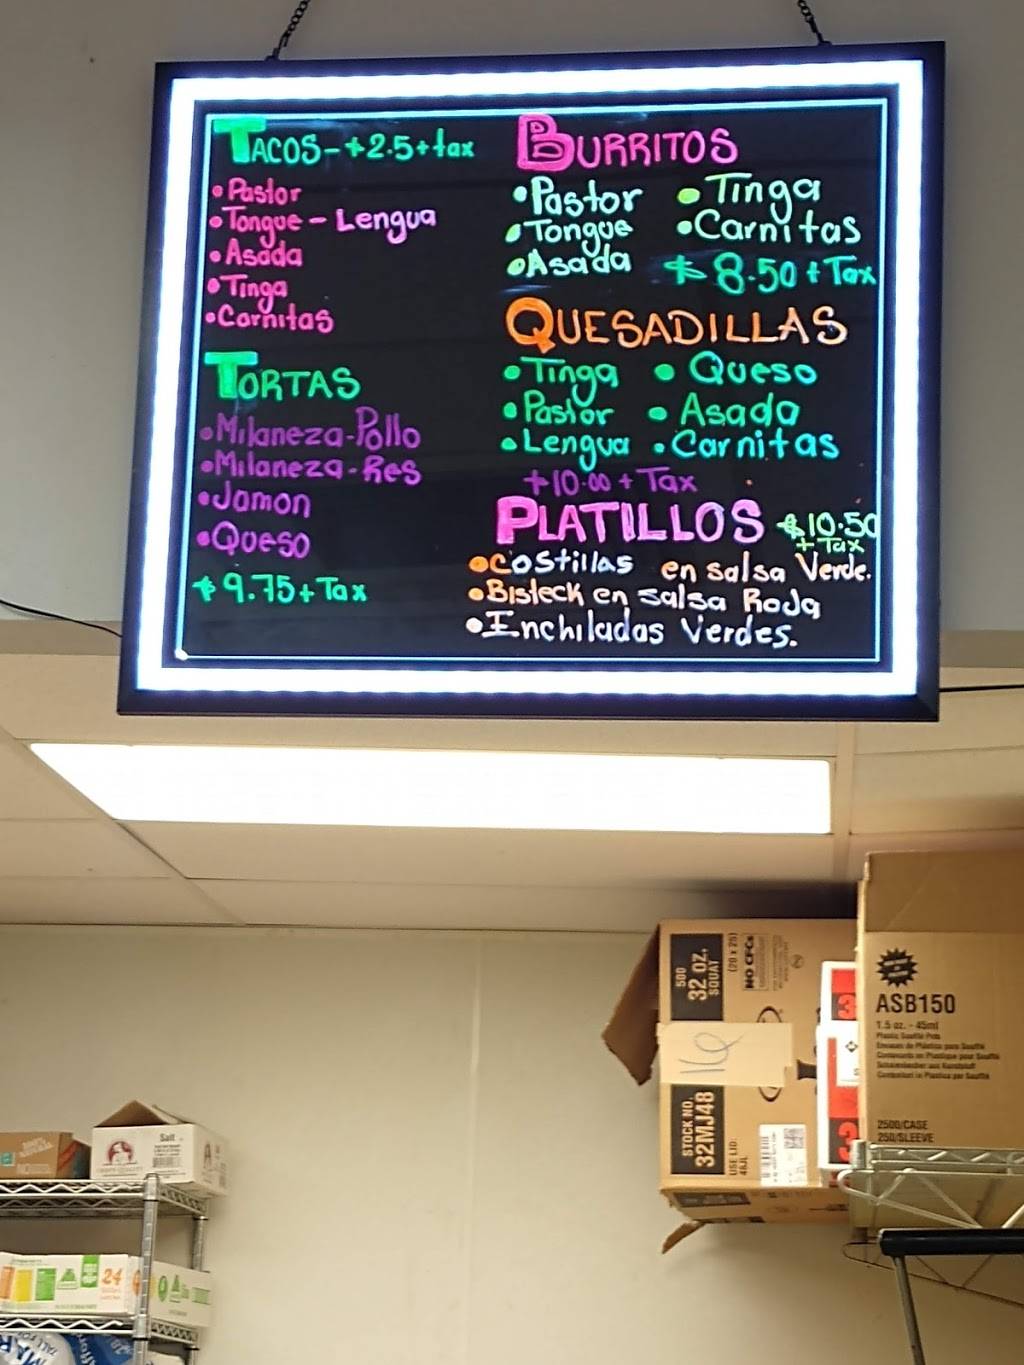 TACOS-$2.5+tax
•Pastor
•Tongue-Lengua
•Asada
•Tinga
•Carnitas
TORTAS
•Milaneza-Pollo
•Milaneza-Res
•Jamon
•Queso
$9.75+Tax
BURRITOS
•Pastor •Tinga
•Tongue •Carnitas
•Asada $8.50+Tax
QUESADILLAS
•Tinga •Queso
•Pastor •Asada
•Lengua •Carnitas
$10.00+Tax
PLATILLOS $10.50
+Tax
•Costillas en salsa Verde.
•Bisteck en salsa Roja
•Enchiladas Verdes.
500
32 OZ.
SQUAT
(20 x 25)
NO CFCs
16
STOCK NO.
32MJ48
USE LID:
ASB150
1.5 oz. - 45ml
2500/CASE
250/SLEEVE
Salt
24